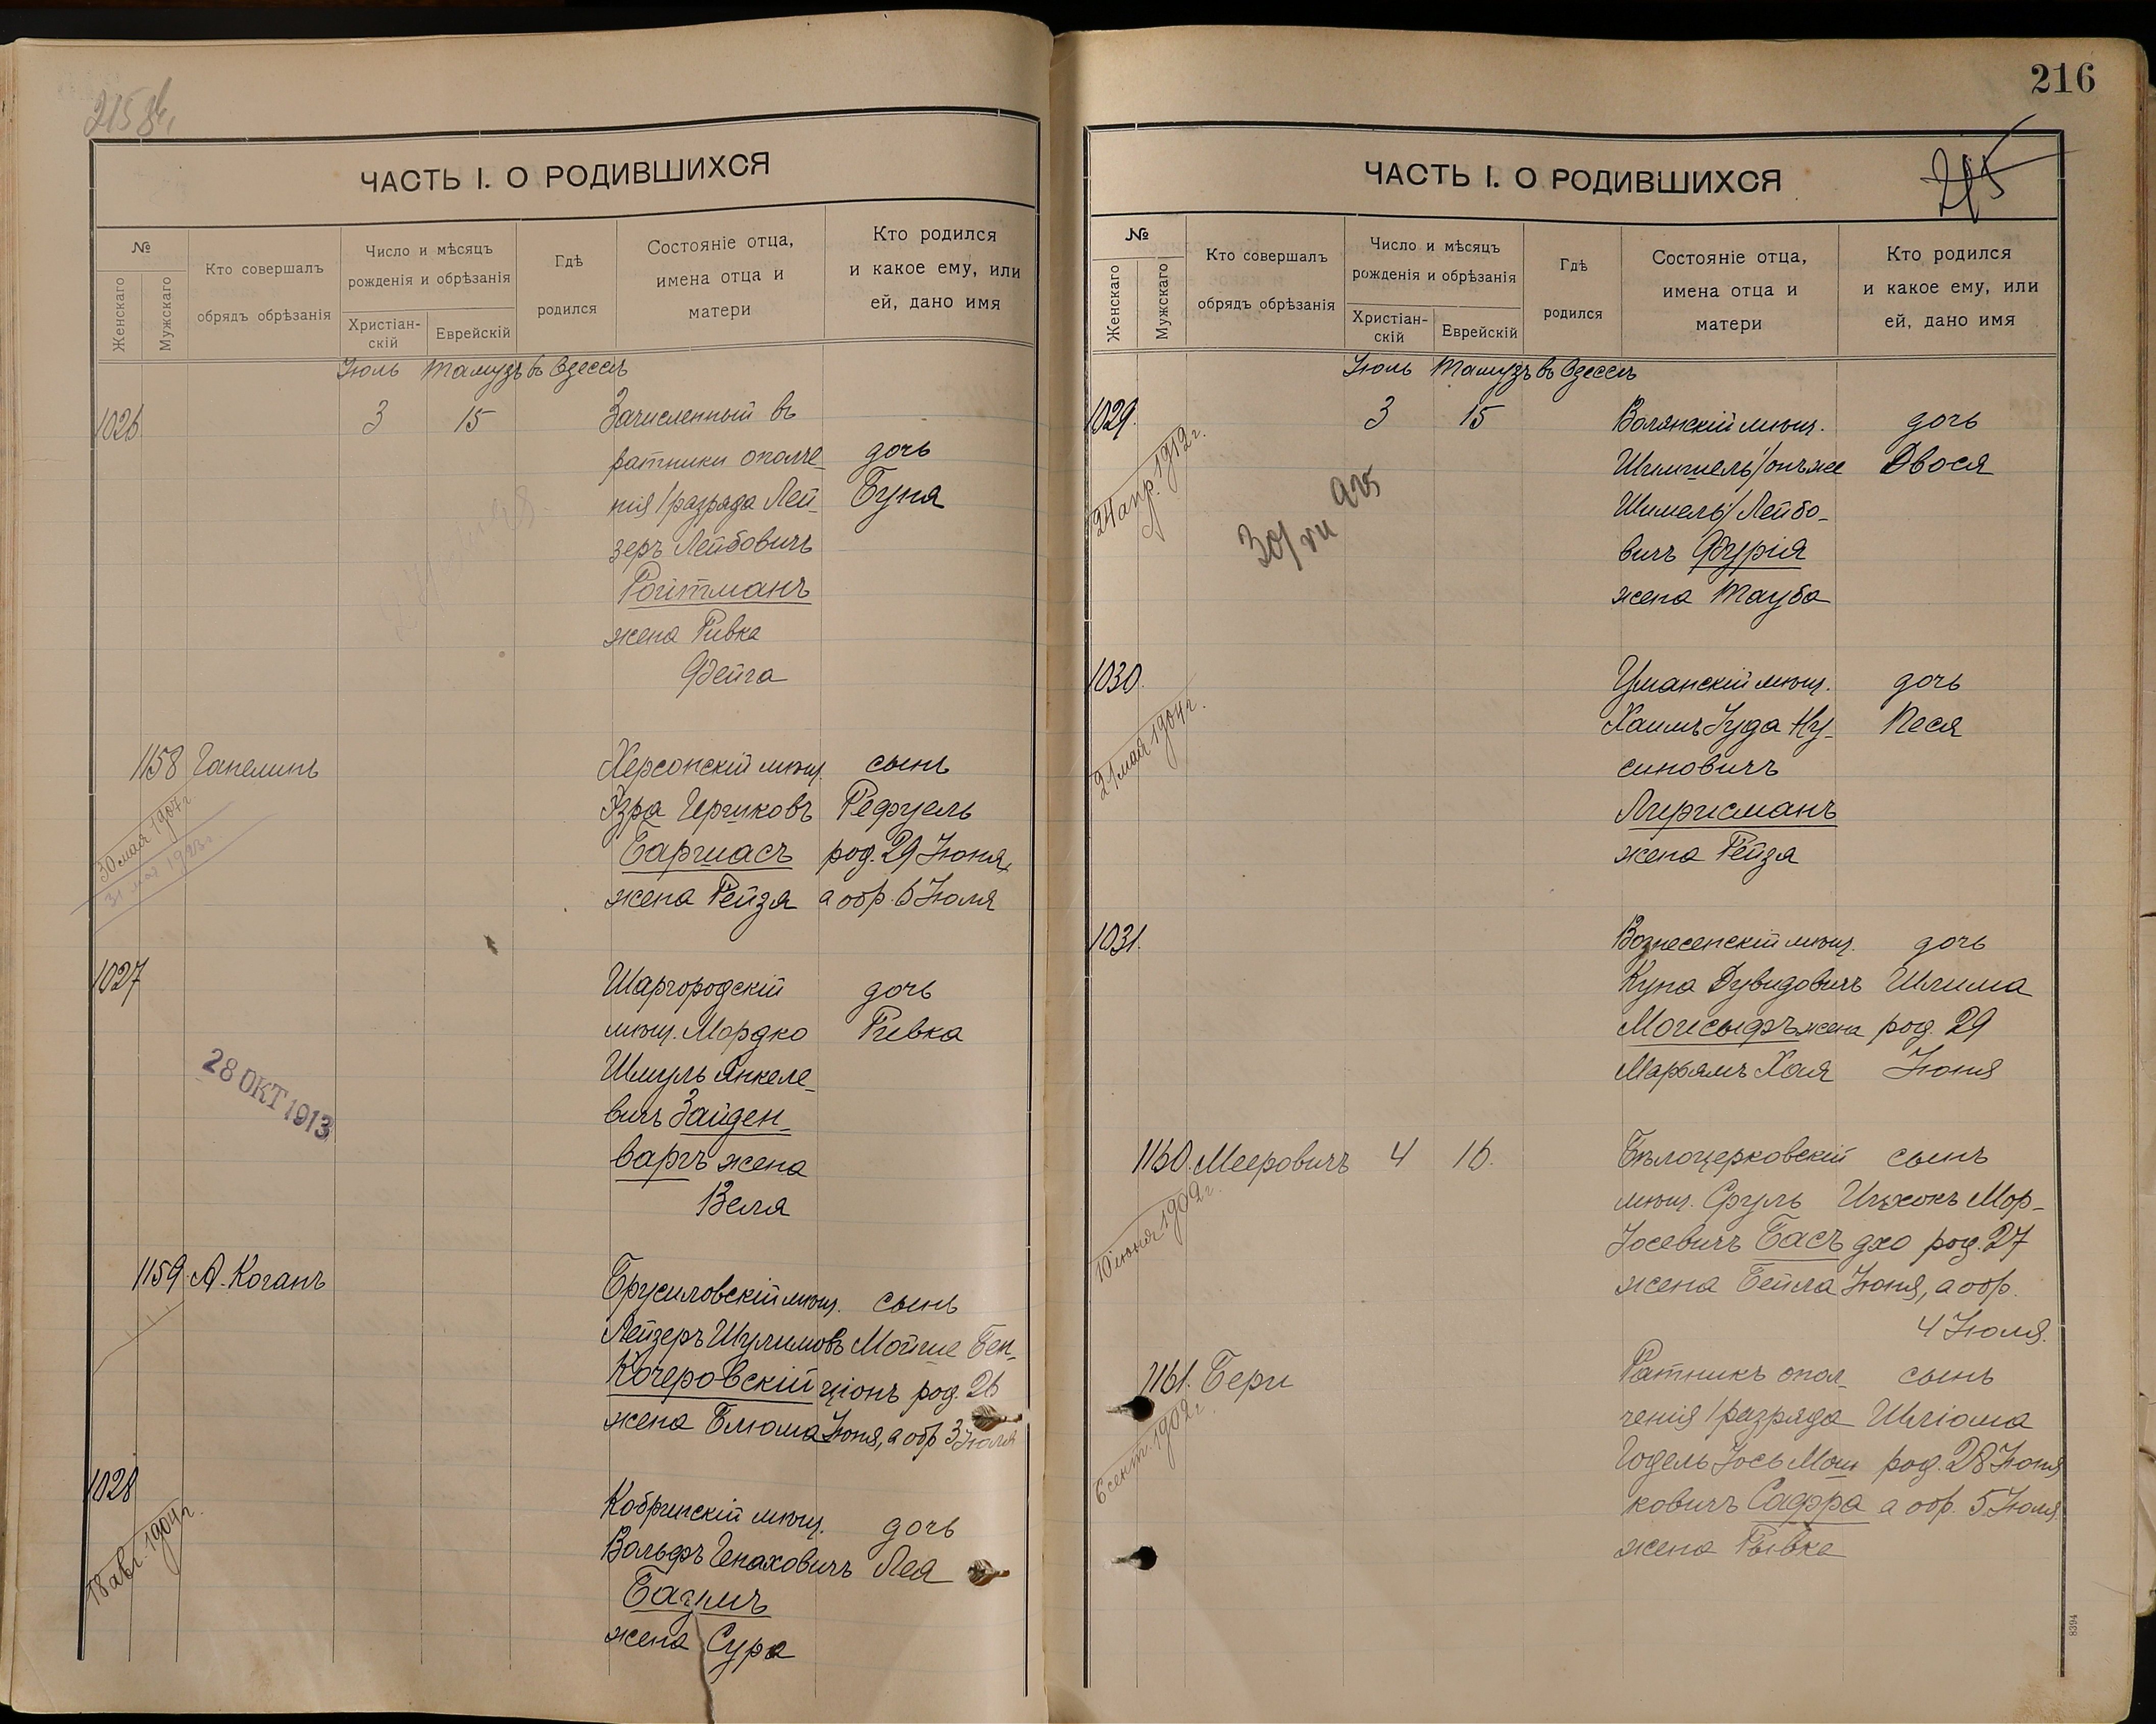 ЧАСТЬ I. О РОДИВШИХСЯ
№
Женскаго
Мужскаго
Кто совершалъ
обрядъ обрѣзанія
Число и мѣсяцъ
рожденія и обрѣзанія
Христіан-
скій
Еврейскій
Гдѣ
родился
Состояніе отца,
имена отца и
матери
Кто родился
и какое ему, или
ей, дано имя
Іюль Тамузъ въ Одессѣ
1026. 3 15 Зачисленный въ
ратники ополче- дочь
нія 1 разряда Лей- Буня
зеръ Лейбовичъ
Ройтманъ
жена Ривка
Фейга
1158 Гапелинъ Херсонскій мѣщ. сынъ
Азра Гершковъ Рефуель
Баршасъ род. 29 Іюня,
жена Рейзя а обр. 6 Іюля
30 мая 1907 г.
1027 Шаргородскій дочь
мѣщ. Мордко Ривка
Шмуль Янкеле-
вичъ Зайден-
варгъ жена
Веля
28 ОКТ 1913
1159. А. Коганъ Брусиловскій мѣщ. сынъ
Лейзеръ Шулимовъ Мойше Бен-
Кочеровскій ціонъ род. 26
жена Блюма Іюня, а обр 3 Іюля
1028 Кобринскій мѣщ. дочь
Вольфъ Генаховичъ Лея
жена Сура
18 авг. 1904 г.
216
215
ЧАСТЬ I. О РОДИВШИХСЯ
№
Женскаго
Мужскаго
Кто совершалъ
обрядъ обрѣзанія
Число и мѣсяцъ
рожденія и обрѣзанія
Христіан-
скій
Еврейскій
Гдѣ
родился
Состояніе отца,
имена отца и
матери
Кто родился
и какое ему, или
ей, дано имя
Іюль Тамузъ въ Одессѣ
1029. 3 15 мѣщ. дочь
Шимшель/онъ же Двося
Шимель/ Лейбо-
вичъ Фурія
жена Тауба
24 апр. 1912 г.
1030. Уманскій мѣщ. дочь
Хаимъ Іуда Ну- Песя
синовичъ
жена Рейзя
21 мая 1904 г.
1031. Вознесенскій мѣщ. дочь
Куна Дувидовичъ Шлима
жена род. 29
Марьямъ Хая Іюня
1160. Мееровичъ 4 16. Бѣлоцерковскій сынъ
мѣщ. Сруль Ицхокъ Мор-
Іосевичъ Басъ дхо род. 27
жена Бейла Іюня, а обр.
4 Іюля.
10 іюня 1909 г.
1161. Бери Ратникъ опол- сынъ
ченія 1 разряда Шліома
Годель Іось Мош род. 28 Іюня
ковичъ Сафра а обр. 5 Іюля.
жена Рывка
6 сент. 1902 г.
8394